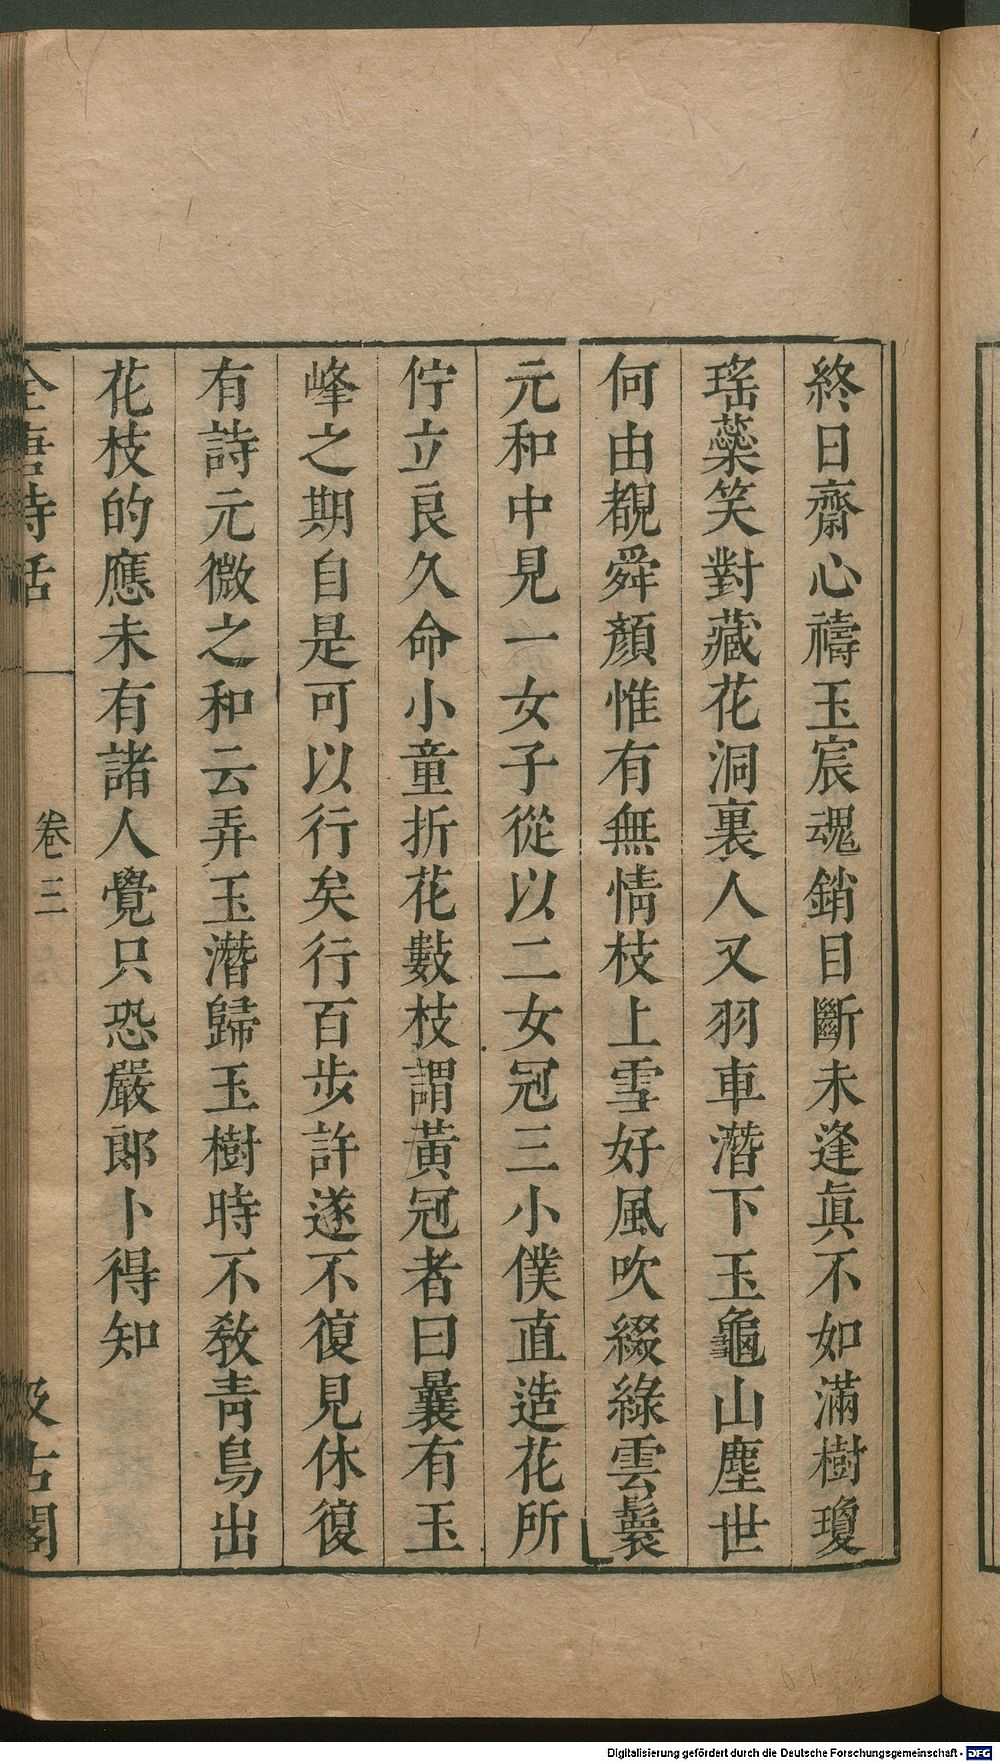 終日齋心禱玉宸魂銷目斷未逢眞不如滿樹瓊
瑤蘂笑對藏花洞裏人又羽車潛下玉龜山塵世
何由覩舜顏惟有無情枝上雪好風吹綴綠雲鬟
元和中見一女子從以二女冠三小僕直造花所
佇立良久命小童折花數枝謂黃冠者曰曩有玉
峰之期自是可以行矣行百步許遂不復見休復
有詩元微之和云弄玉潛歸玉樹時不教青鳥出
花枝的應未有諸人覺只恐嚴郎卜得知
全唐詩話 卷三 汲古閣
Digitalisierung gefördert durch die Deutsche Forschungsgemeinschaft - DFG